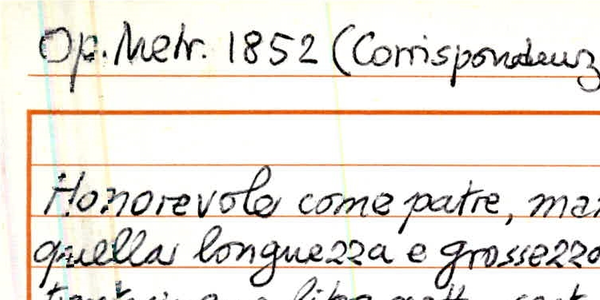 Op. Metr. 1852 (Corrispondenz
Honorevole come patre, ma
quella longuezza e grossezza